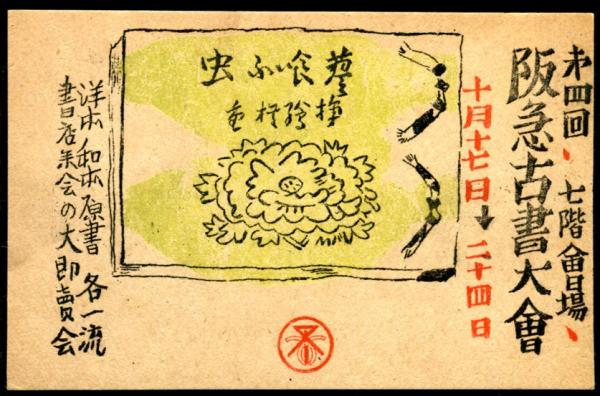 㐧四回、七階會場、
阪急古書大會
十月十七日↓二十四日
蓼喰ふ虫
挿繪楢重
洋本/和本原書 各一流
書店 会の大即賣会